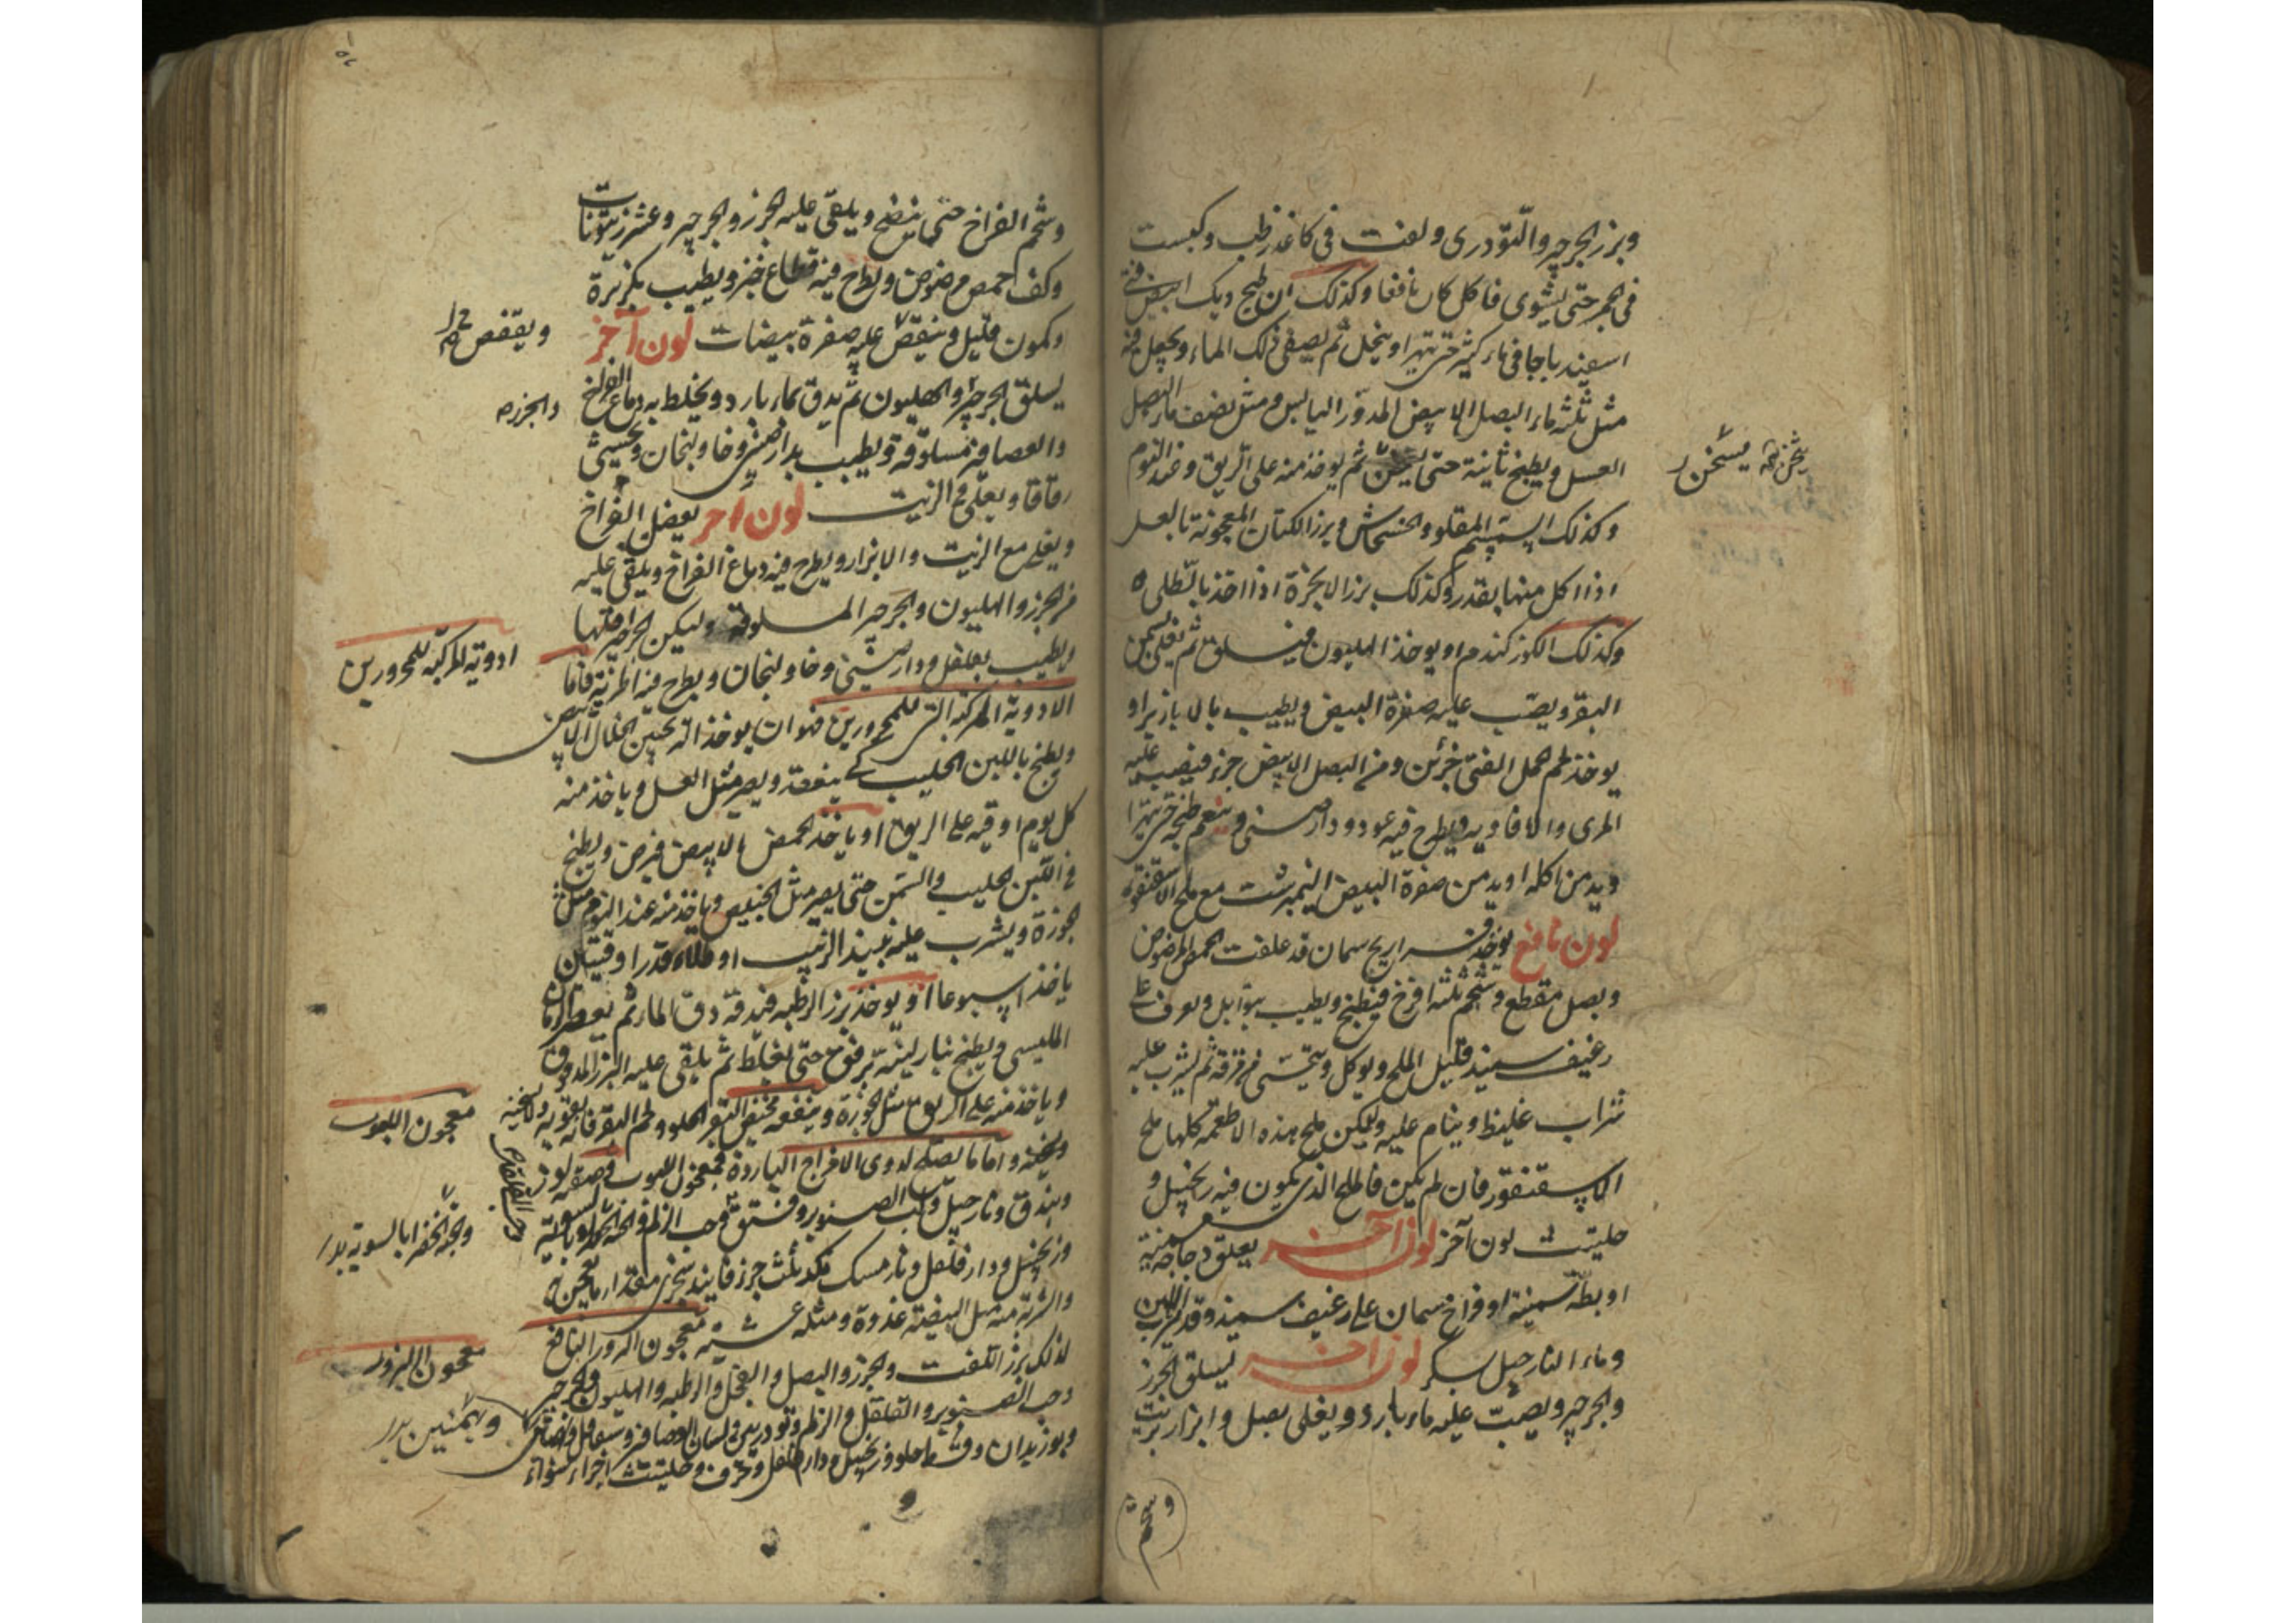 وبزر الجرجير والتودرى ولفت فى كاغد رطب وكبست
فى الجمر حتى يشوى فاكل كان نافعا وكذلك ان طبخ ديك ابيض فتى
اسفيدباجا فى ماء كثير حتى يتهرا وينحل ثم يصفى ذلك الماء ويجعل فيه
مثل ثلثه ماء البصل الابيض المدور اليابس ومثل نصف ماء البصل
العسل ويطبخ ثانية حتى يثخن ثم يوخذ منه على الريق وعند النوم
وكذلك السمسم المقلو والخشخاش وبزر الكتان المعجونة بالعسل
اذا اكل منها بقدر وكذلك بزر الانجرة اذا اخذ بالطلى
وكذلك الكوز كندم او يوخذ الهليون فيسلق ثم يغلى بسمن
البقر ويصب عليه صفرة البيض ويطيب بالابازير او
يوخذ لحم الحمل الفتى جزئين ومن البصل الابيض جزء فيصب عليه
المرى والافاويه ويطرح فيه عود ودارصينى وينعم طبخه حتى يتهرا
ويدمن اكله او يدمن صفرة البيض النيمبرشت مع ملح الاسقنقور
لون نافع يوخذ فراريج سمان قد علفت الحمص المرضوض
وبصل مقطع وشحم ثلثة افرخ فيطبخ ويطيب بتوابل ويغرف على
رغيف سميذ قليل الملح ويوكل ويتحسى من مرقه ثم يشرب عليه
شراب غليظ وينام عليه وليكن ملح هذه الاطعمة كلها ملح
الاسقنقور فان لم يكن فالملح الذى يكون فيه زنجبيل و
حلتيت لون آخر لون آخر يعلق دجاجة سمينة
او بطة سمينة او فراخ سمان على رغيف سميذ وقد شرب اللبن
وماء النارجيل بسكر لون اخر ليسلق الجزر
والجرجير ويصب عليه ماء بارد ويغلى ببصل وابزار بزيت
وشحم
يسخن
وشحم الفراخ حتى ينضج ويلقى عليه الجزر والجرجير وعشر زيتونات
وكف حمص مرضوض ويطرح فيه قطاع خبز ويطيب بكزبرة
وكمون قليل وينقص عليه صفرة بيضات لون آخر
يسلق الجرجير والهليون ثم يدق بماء بارد ويخلط به دماغ الفراخ
والعصافير مسلوقة ويطيب بدارصينى وخاولنجان ويحشى
رقاقا ويغلى فى الزيت لون آخر يفصل الفراخ
ويغلى مع الزيت والابزار ويطرح فيه دماغ الفراخ ويلقى عليه
من الجزر والهليون والجرجير المسلوقة وليكن الجرجير اقلها
ويطيب بفلفل ودارصينى وخاولنجان ويطرح فيه اطرية فاما
الادوية المركبة التى للمحرورين فهو ان يوخذ الترنجبين الابيض
ويطبخ باللبن الحليب كى ينعقد ويصير مثل العسل وياخذ منه
كل يوم اوقية على الريق او ياخذ الحمص الابيض فيرض ويطبخ
فى اللبن الحليب والسمن حتى يصير مثل الخبيص وياخذ منه عند النوم مثل
الجوزة ويشرب عليه نبيذ الزبيب او طلاء قدر اوقيتان
ياخذ اسبوعا او يوخذ بزر الرطبة فيدقه دق الماء ثم يعصر الرمان
المليسى ويطبخ بنار لينة برفق حتى يغلظ ثم يلقى عليه البزر المدقوق
وياخذ منه على الريق مثل الجوزة وينفعه مخيض البقر الحلو ولحم البقر فانه يقويه
ويسخنه واما ما يصلح لذوى الامزاج الباردة فمعجون اللبوب وصفته لوز
وبندق ونارجيل وحب الصنوبر وفستق وحب الزلم والحبة الخضرا بالسوية
وزنجبيل ودارفلفل ونارمسك ثلث جزء فانيذ سجزى مقدار ما يعجن به
والشربة منه مثل البيضة غدوة ومثله عشية معجون البزور النافع
لذلك بزر اللفت والجزر والبصل والفجل والرطبة والهليون والجرجير
وحب الصنوبر والفلفل والزلم وتودرين ولسان العصافير وشقاقل
وبوزيدان وقسط حلو وزنجبيل ودارفلفل وحرف وحلتيت اجزاء سواء
ويقفص
والجزر
ادوية المركبة للمحرورين
معجون اللبوب
والحبة الخضرا بالسوية بدل
معجون البزور
وبهمنين بدل